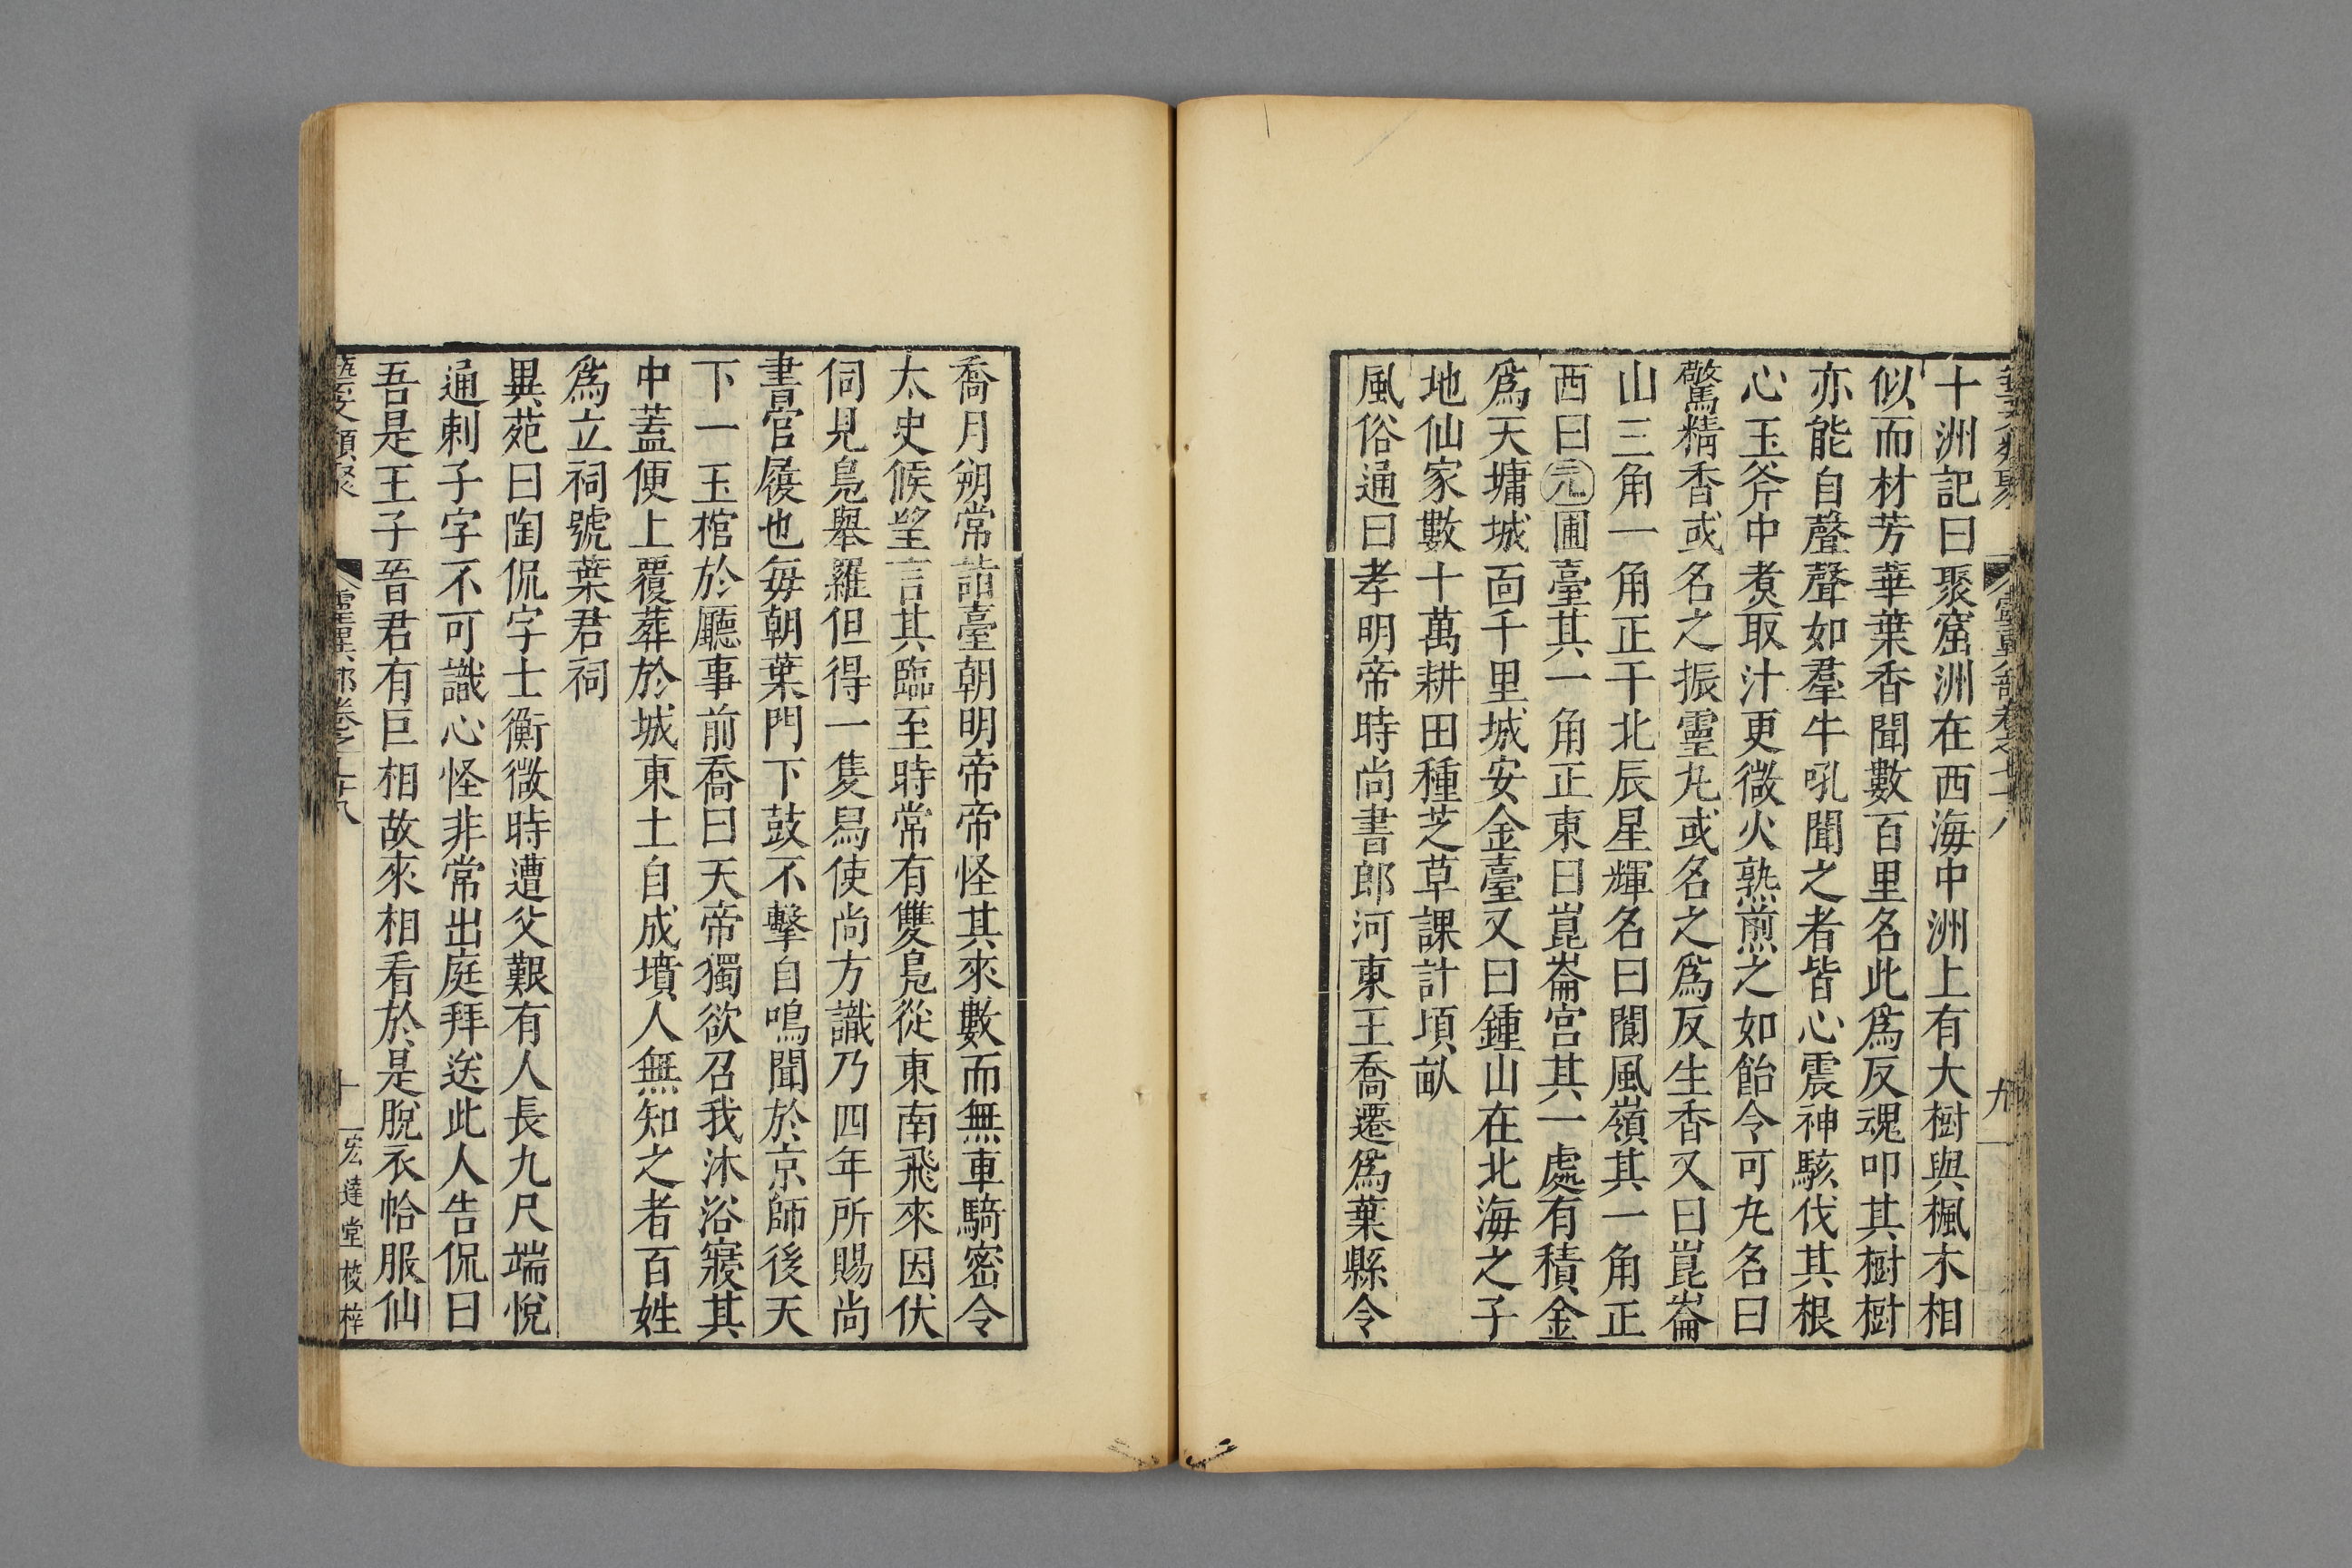 藝文類聚 靈異部卷之七十八 九
十洲記曰聚窟洲在西海中洲上有大樹與楓木相
似而材芳華葉香聞數百里名此爲反魂叩其樹樹
亦能自聲聲如羣牛吼聞之者皆心震神駭伐其根
心玉斧中煑取汁更微火熟煎之如飴令可丸名曰
驚精香或名之振靈丸或名之爲反生香又曰崑崙
山三角一角正干北辰星輝名曰閬風嶺其一角正
西曰元圃臺其一角正東曰崑崙宮其一處有積金
爲天墉城面千里城安金臺又曰鍾山在北海之子
地仙家數十萬耕田種芝草課計頃畝
風俗通曰孝明帝時尚書郎河東王喬遷爲葉縣令
喬月朔常詣臺朝明帝帝怪其來數而無車騎密令
太史候望言其臨至時常有雙鳧從東南飛來因伏
伺見鳧舉羅但得一隻舄使尚方識乃四年所賜尚
書官履也每朝葉門下鼓不擊自鳴聞於京師後天
下一玉棺於廳事前喬曰天帝獨欲召我沐浴寢其
中蓋便上覆葬於城東土自成墳人無知之者百姓
爲立祠號葉君祠
異苑曰陶侃字士衡微時遭父艱有人長九尺端悅
通刺子字不可識心怪非常出庭拜送此人告侃曰
吾是王子晉君有巨相故來相看於是脫衣帢服仙
藝文類聚 靈異部卷之七十八 十 宏達堂校梓